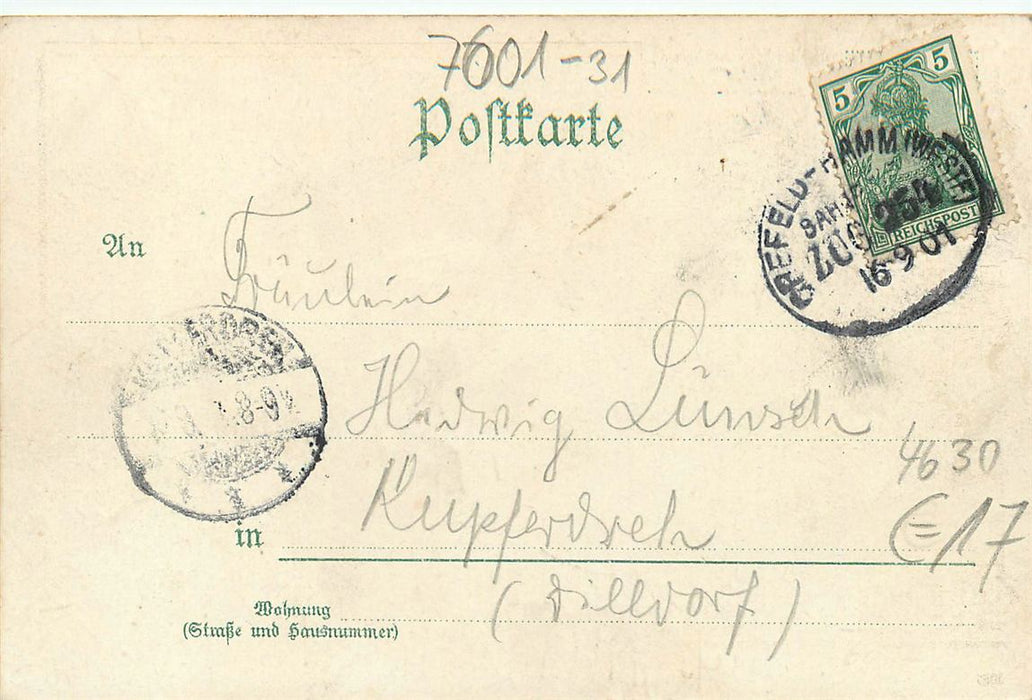 7601-31
Postkarte
5 5
REICHSPOST
CREFELD-HAMM (WESTF)
ZUG 254
16 9 01
An
Fräulein
8-9
Hedwig
Kupferdreh
in
4630
€ 17
(Dilldorf)
Wohnung
(Straße und Hausnummer)